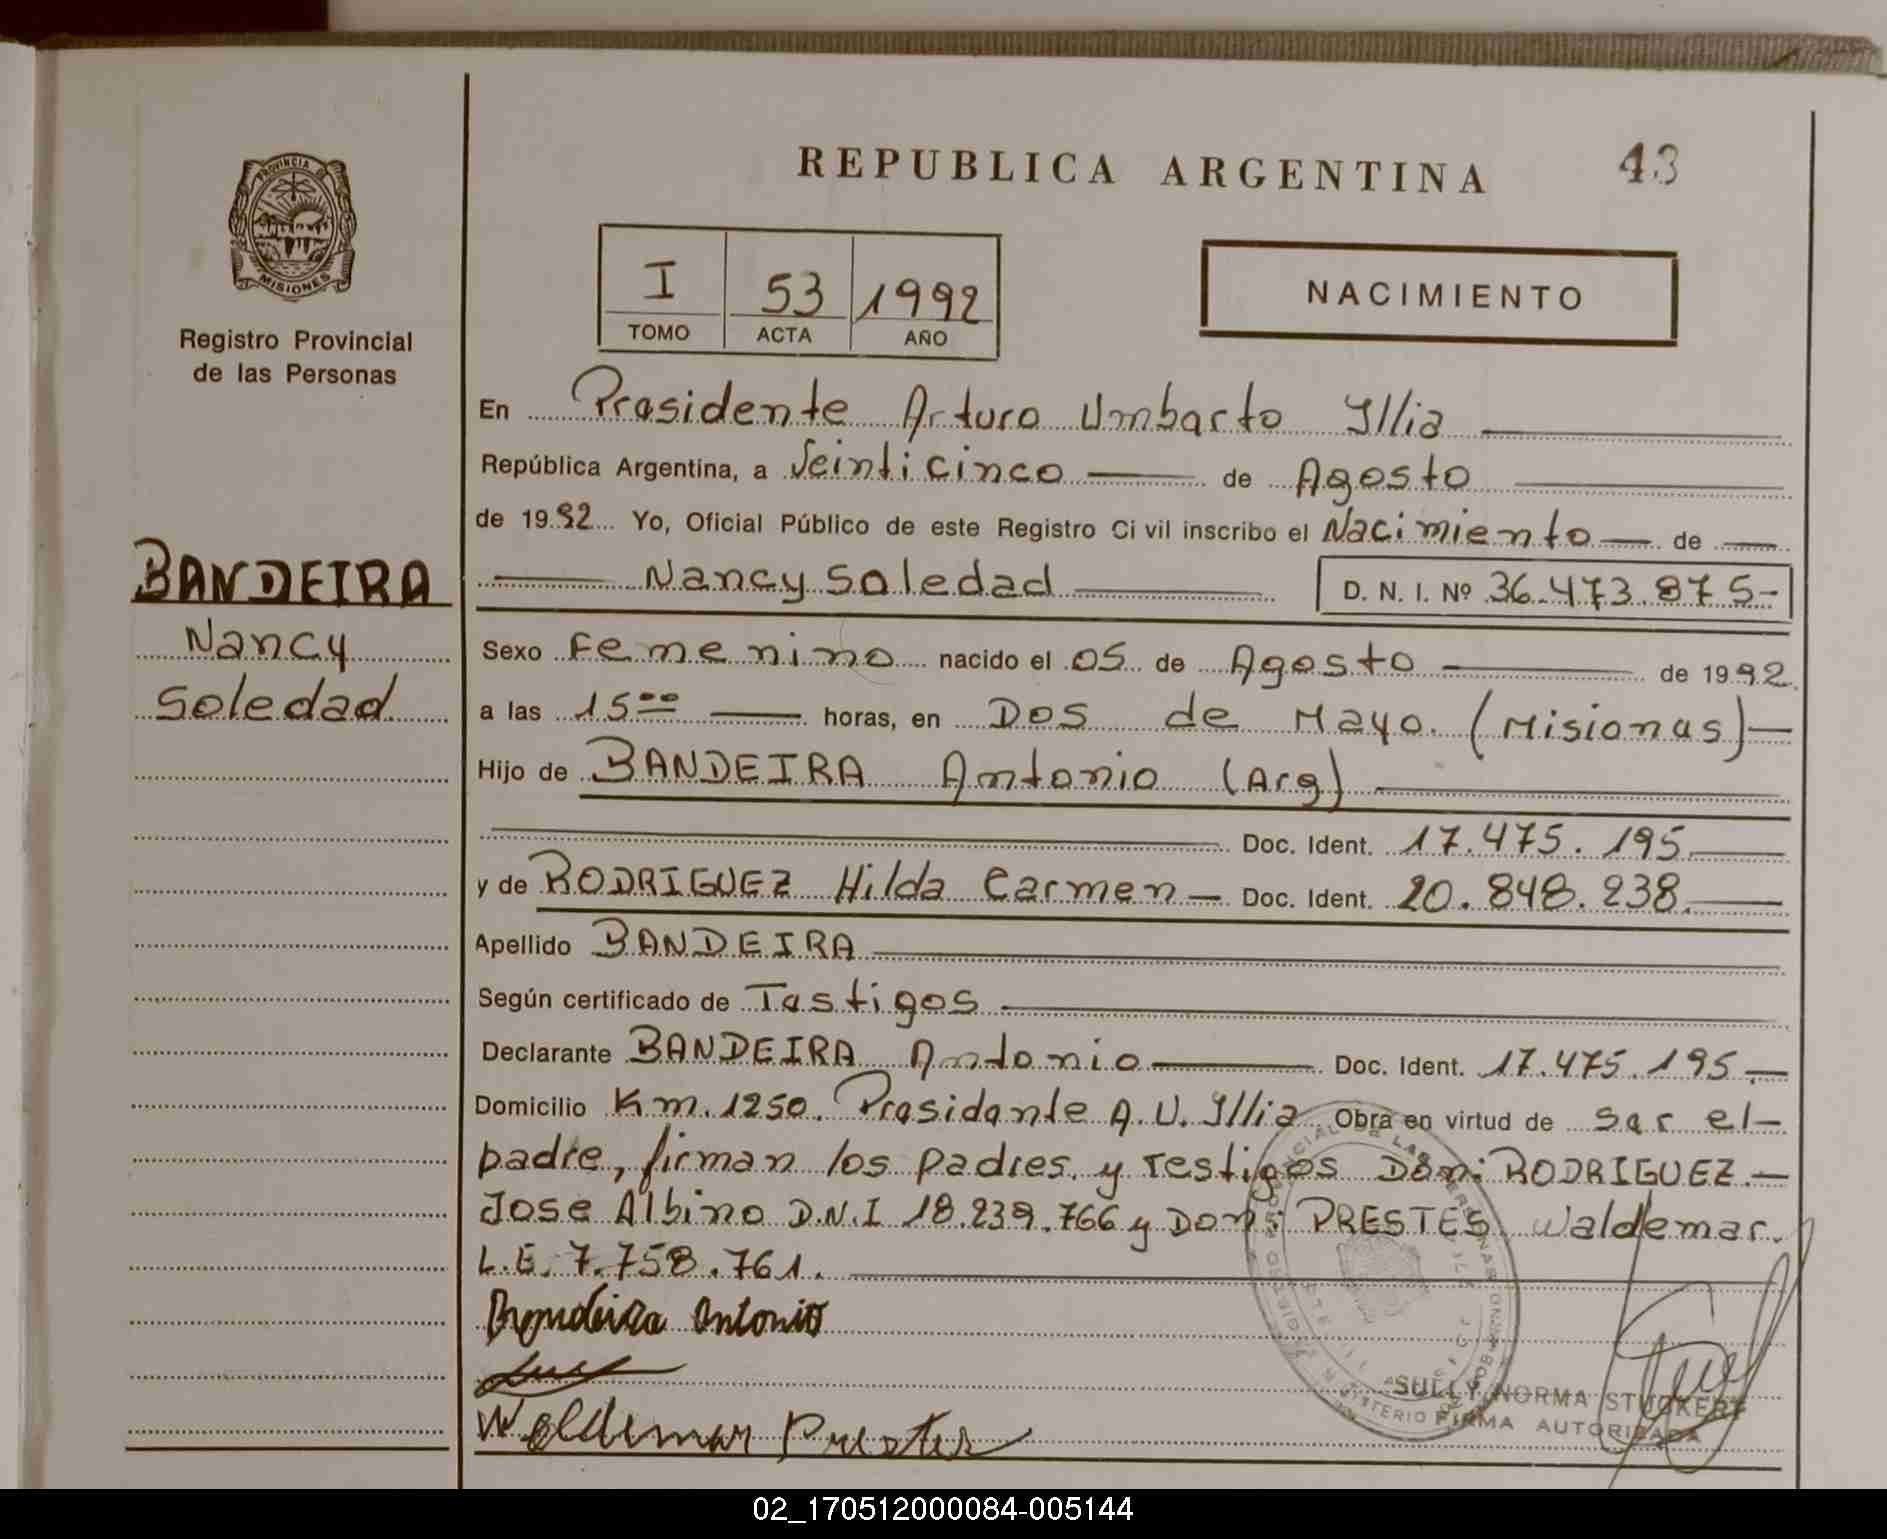 REPUBLICA ARGENTINA
43
PROVINCIA DE
MISIONES
Registro Provincial
de las Personas
I 53 1992
TOMO ACTA AÑO
NACIMIENTO
BANDEIRA
Nancy
Soledad
En Presidente Arturo Umberto Illia
República Argentina, a Veinticinco de Agosto
de 1992 Yo, Oficial Público de este Registro Civil inscribo el Nacimiento de
Nancy Soledad D. N. I. Nº 36.473.875-
Sexo Femenino nacido el 05 de Agosto de 1992
a las 15 00 horas, en Dos de Mayo. (Misiones)
Hijo de BANDEIRA Antonio (Arg)
Doc. Ident. 17.475.195
y de RODRIGUEZ Hilda Carmen Doc. Ident. 20.848.238
Apellido BANDEIRA
Según certificado de Testigos
Declarante BANDEIRA Antonio Doc. Ident. 17.475.195
Domicilio Km. 1250. Presidente A. U. Illia Obra en virtud de ser el-
padre, firman los padres y testigos Don: RODRIGUEZ.-
Jose Albino D.N.I 18.239.766 y Don: PRESTES Waldemar.
L.E. 7.758.761.
Bandeira Antonio
Waldemar Prestes
SULLY NORMA STUCKERT
FIRMA AUTORIZADA
02_170512000084-005144